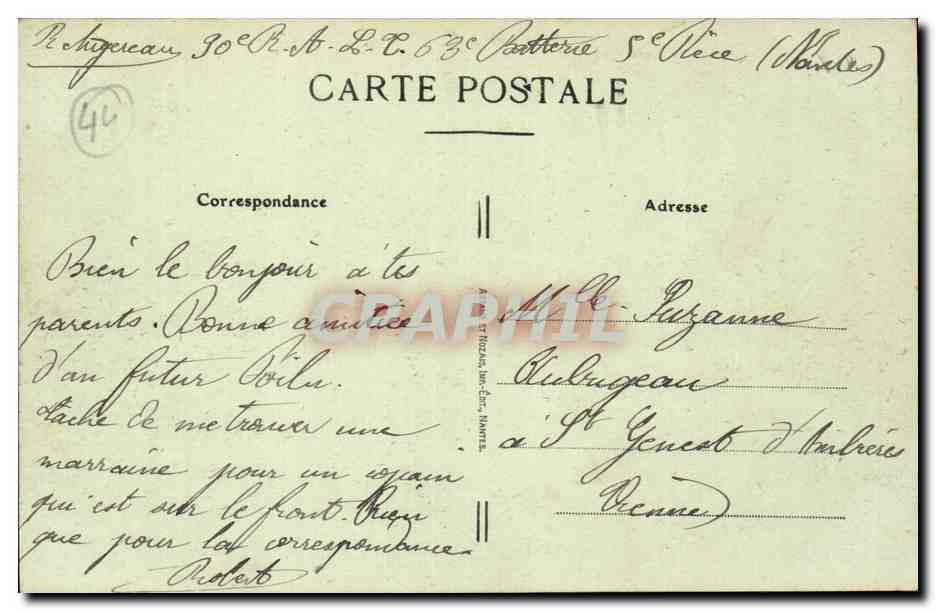 R. Augereau 90e R.A.L.T. 63e Batterie 5e Pièce (Nantes)
CARTE POSTALE
44
Correspondance
Adresse
Bien le bonjour à tes
parents. Bonne amitiée
d'un futur Poilu.
tache de me trouver une
marraine pour un copain
qui est sur le front. Rien
que pour la correspondance.
Robert
NOZAIS, IMP.-ÉDIT., NANTES.
Mlle Suzanne
Aubugeau
à St Genest d'Ambrères
Vienne
CRAPHIL